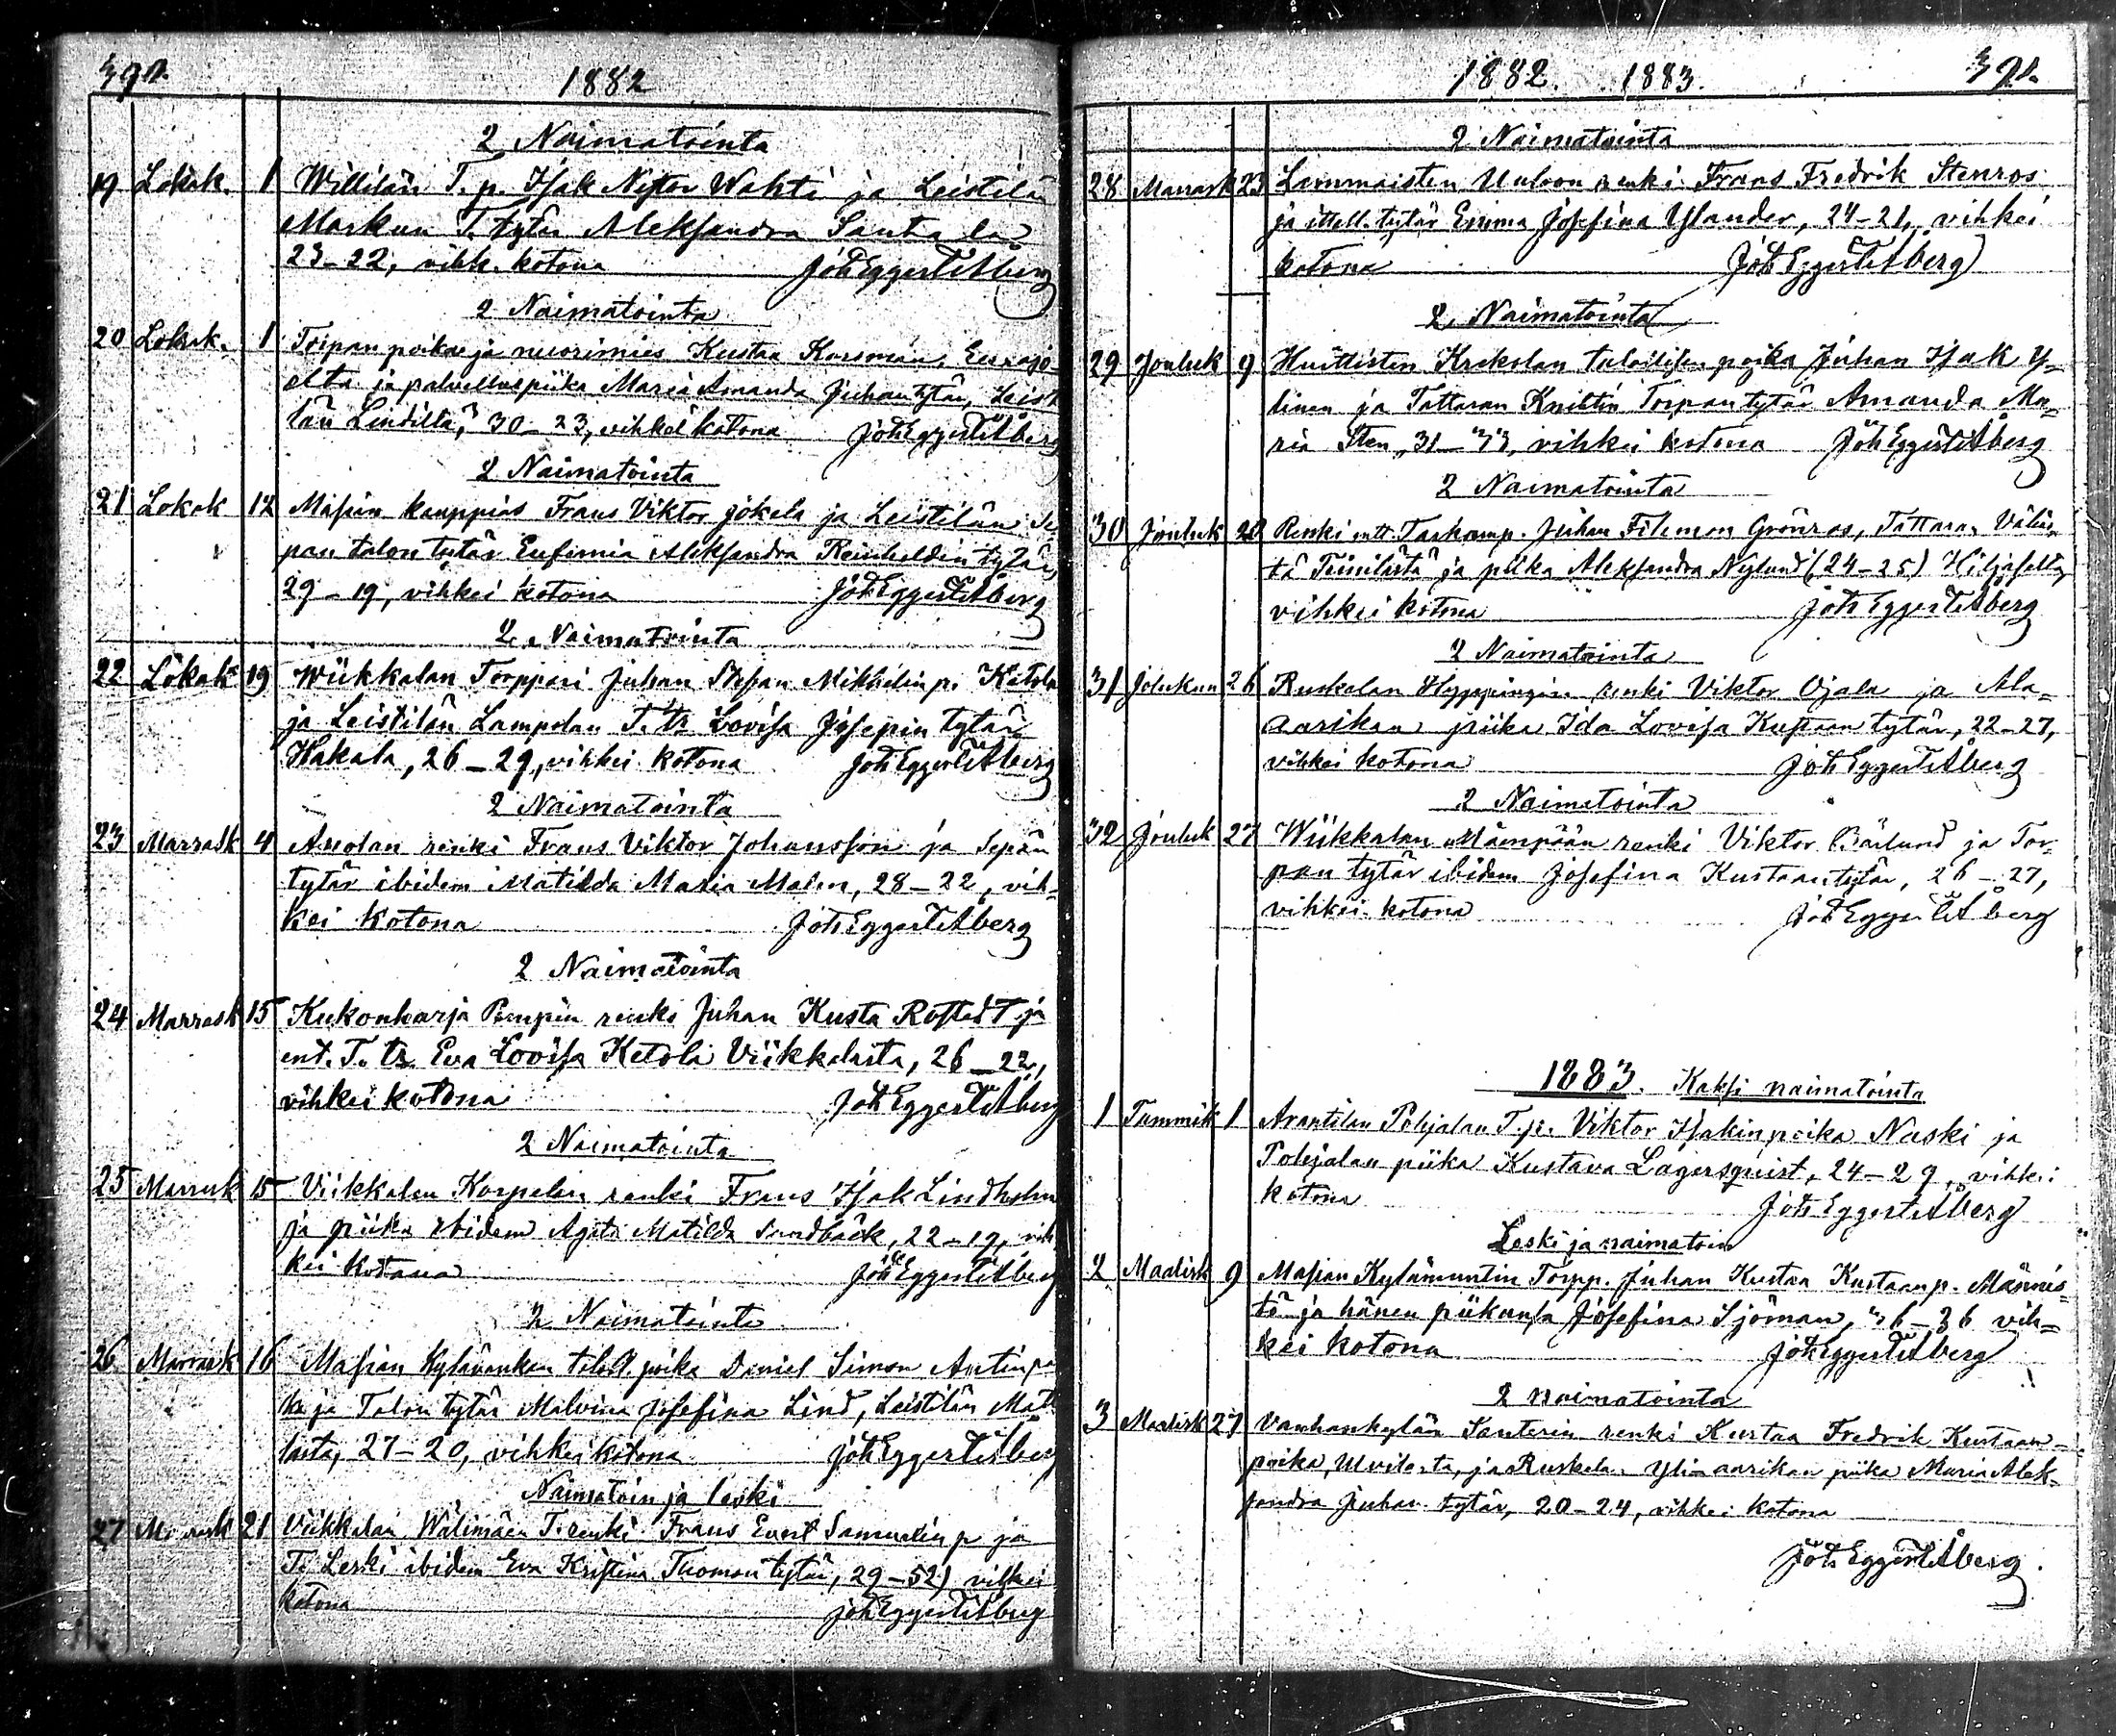 390.
1882
2 Naimatointa
19 Lokak. 1 Willilän T. p. Isak Nestor Wahti ja Leistilän
Markun T. tytär Aleksandra Santala
23–22, vihk. kotona Joh Eggert Åberg
2 Naimatointa
20 Lokak. 1 Torpan poika ja nuorimies Kustaa Korsman, Eurajo-
elta ja palvelluspiika Maria Amanda Juhantytär, Leisti
län 30–23, vihkei kotona Joh Eggert Åberg
2 Naimatointa
21 Lokak 12 Masian kauppias Frans Viktor Jokela ja Leistilän Se
pän talon tytär Eufimia Aleksandra Reinholdin tytär,
29–19, vihkei kotona Joh Eggert Åberg
2 Naimatointa
22 Lokak 19 Wiikkalan Torppari Juhan Stefan Mikkelin p. Ketola
ja Leistilän Lampolan T. tr Lovisa Josepin tytär
Hakala, 26–29, vihkei kotona Joh Eggert Åberg
2 Naimatointa
23 Marrask 4 Anolan renki Frans Viktor Johansson ja Sepän
tytär ibidem Matilda Maria Malen, 28–22, vih-
kei kotona Joh Eggert Åberg
2 Naimatointa
24 Marrask 15 Kukonharja Pempin renki Juhan Kusta Rostedt ja
ent. T. tr Eva Lovisa Ketola Viikkalasta, 26–22,
vihkei kotona Joh Eggert Åberg
2 Naimatointa
25 Marrask 15 Viikkalan Korpelan renki Frans Isak Lindholm
ja piika ibidem Agata Matilda Sundbäck, 22–19, vih
kei kotona Joh Eggert Åberg
2 Naimatointa
26 Marrask 16 Masian talol. poika Daniel Simon Antinpoi
ka ja Talon tytär Malvina Josefina Lind, Leistilän Mat
lasta, 27–20, vihkei kotona Joh Eggert Åberg
Naimatoin ja leski
27 Marrask 21 Viikkalan Wälimäen T. renki Frans Evert Samuelin p ja
T. Leski ibidem Eva Kristina Thomontytär, 29–52) vihkei
kotona Joh Eggert Åberg
1882. 1883. 391.
2 Naimatointa
28 Marrask 23 Lammaisten Uuloon renki Frans Fredrik Stenros
ja ittell. tytär Emma Josefina Ylander, 24–21, vihkei
kotona Joh Eggert Åberg
2 Naimatointa
29 Jouluk 9 Huittisten Krekolan talollisen poika Juhan Isak Y-
linen ja Tattaran Knihtin Torpantytär Amanda Ma-
ria Sten, 31–33, vihkei kotona Joh Eggert Åberg
2 Naimatointa
30 Jouluk 20 Renki Juhan Filemon Grönros, Tattaran
ja piika Aleksandra Nylund (24–25)
vihkei kotona Joh Eggert Åberg
2 Naimatointa
31 Joulukuu 26 Ruskalan Hyppingin renki Viktor Ojala ja Ala-
aarikan piika Ida Lovisa Kustaan tytär, 22–27,
vihkei kotona Joh Eggert Åberg
2 Naimatointa
32 Jouluk 27 Wiikkalan Mämpään renki Viktor Bärlund ja Tor-
pan tytär ibidem Josefina Kustaantytär, 26–27,
vihkei kotona Joh Eggert Åberg
1883. Kaksi naimatointa
1 Tammik 1 Arantilan Pohjalan T. p. Viktor Isakinpoika Naski ja
Pohjalan piika Kustava Lagerqvist, 24–29, vihkei
kotona Joh Eggert Åberg
Leski ja naimatoin
2 Maalisk 9 Masian Kylämuntin Torpp. Juhan Kustaa Kustaanp. Männis-
tö ja hänen piikansa Josefina Sjöman, 36–36 vih-
kei kotona Joh Eggert Åberg
2 naimatointa
3 Maalisk 27 Vanhankylän Santerin renki Kustaa Fredrik Kustaan-
poika, Ulvilasta, ja Ruskelan Yliaarikan piika Maria Alek-
sandra Juhantytär, 20–24, vihkei kotona
Joh Eggert Åberg.